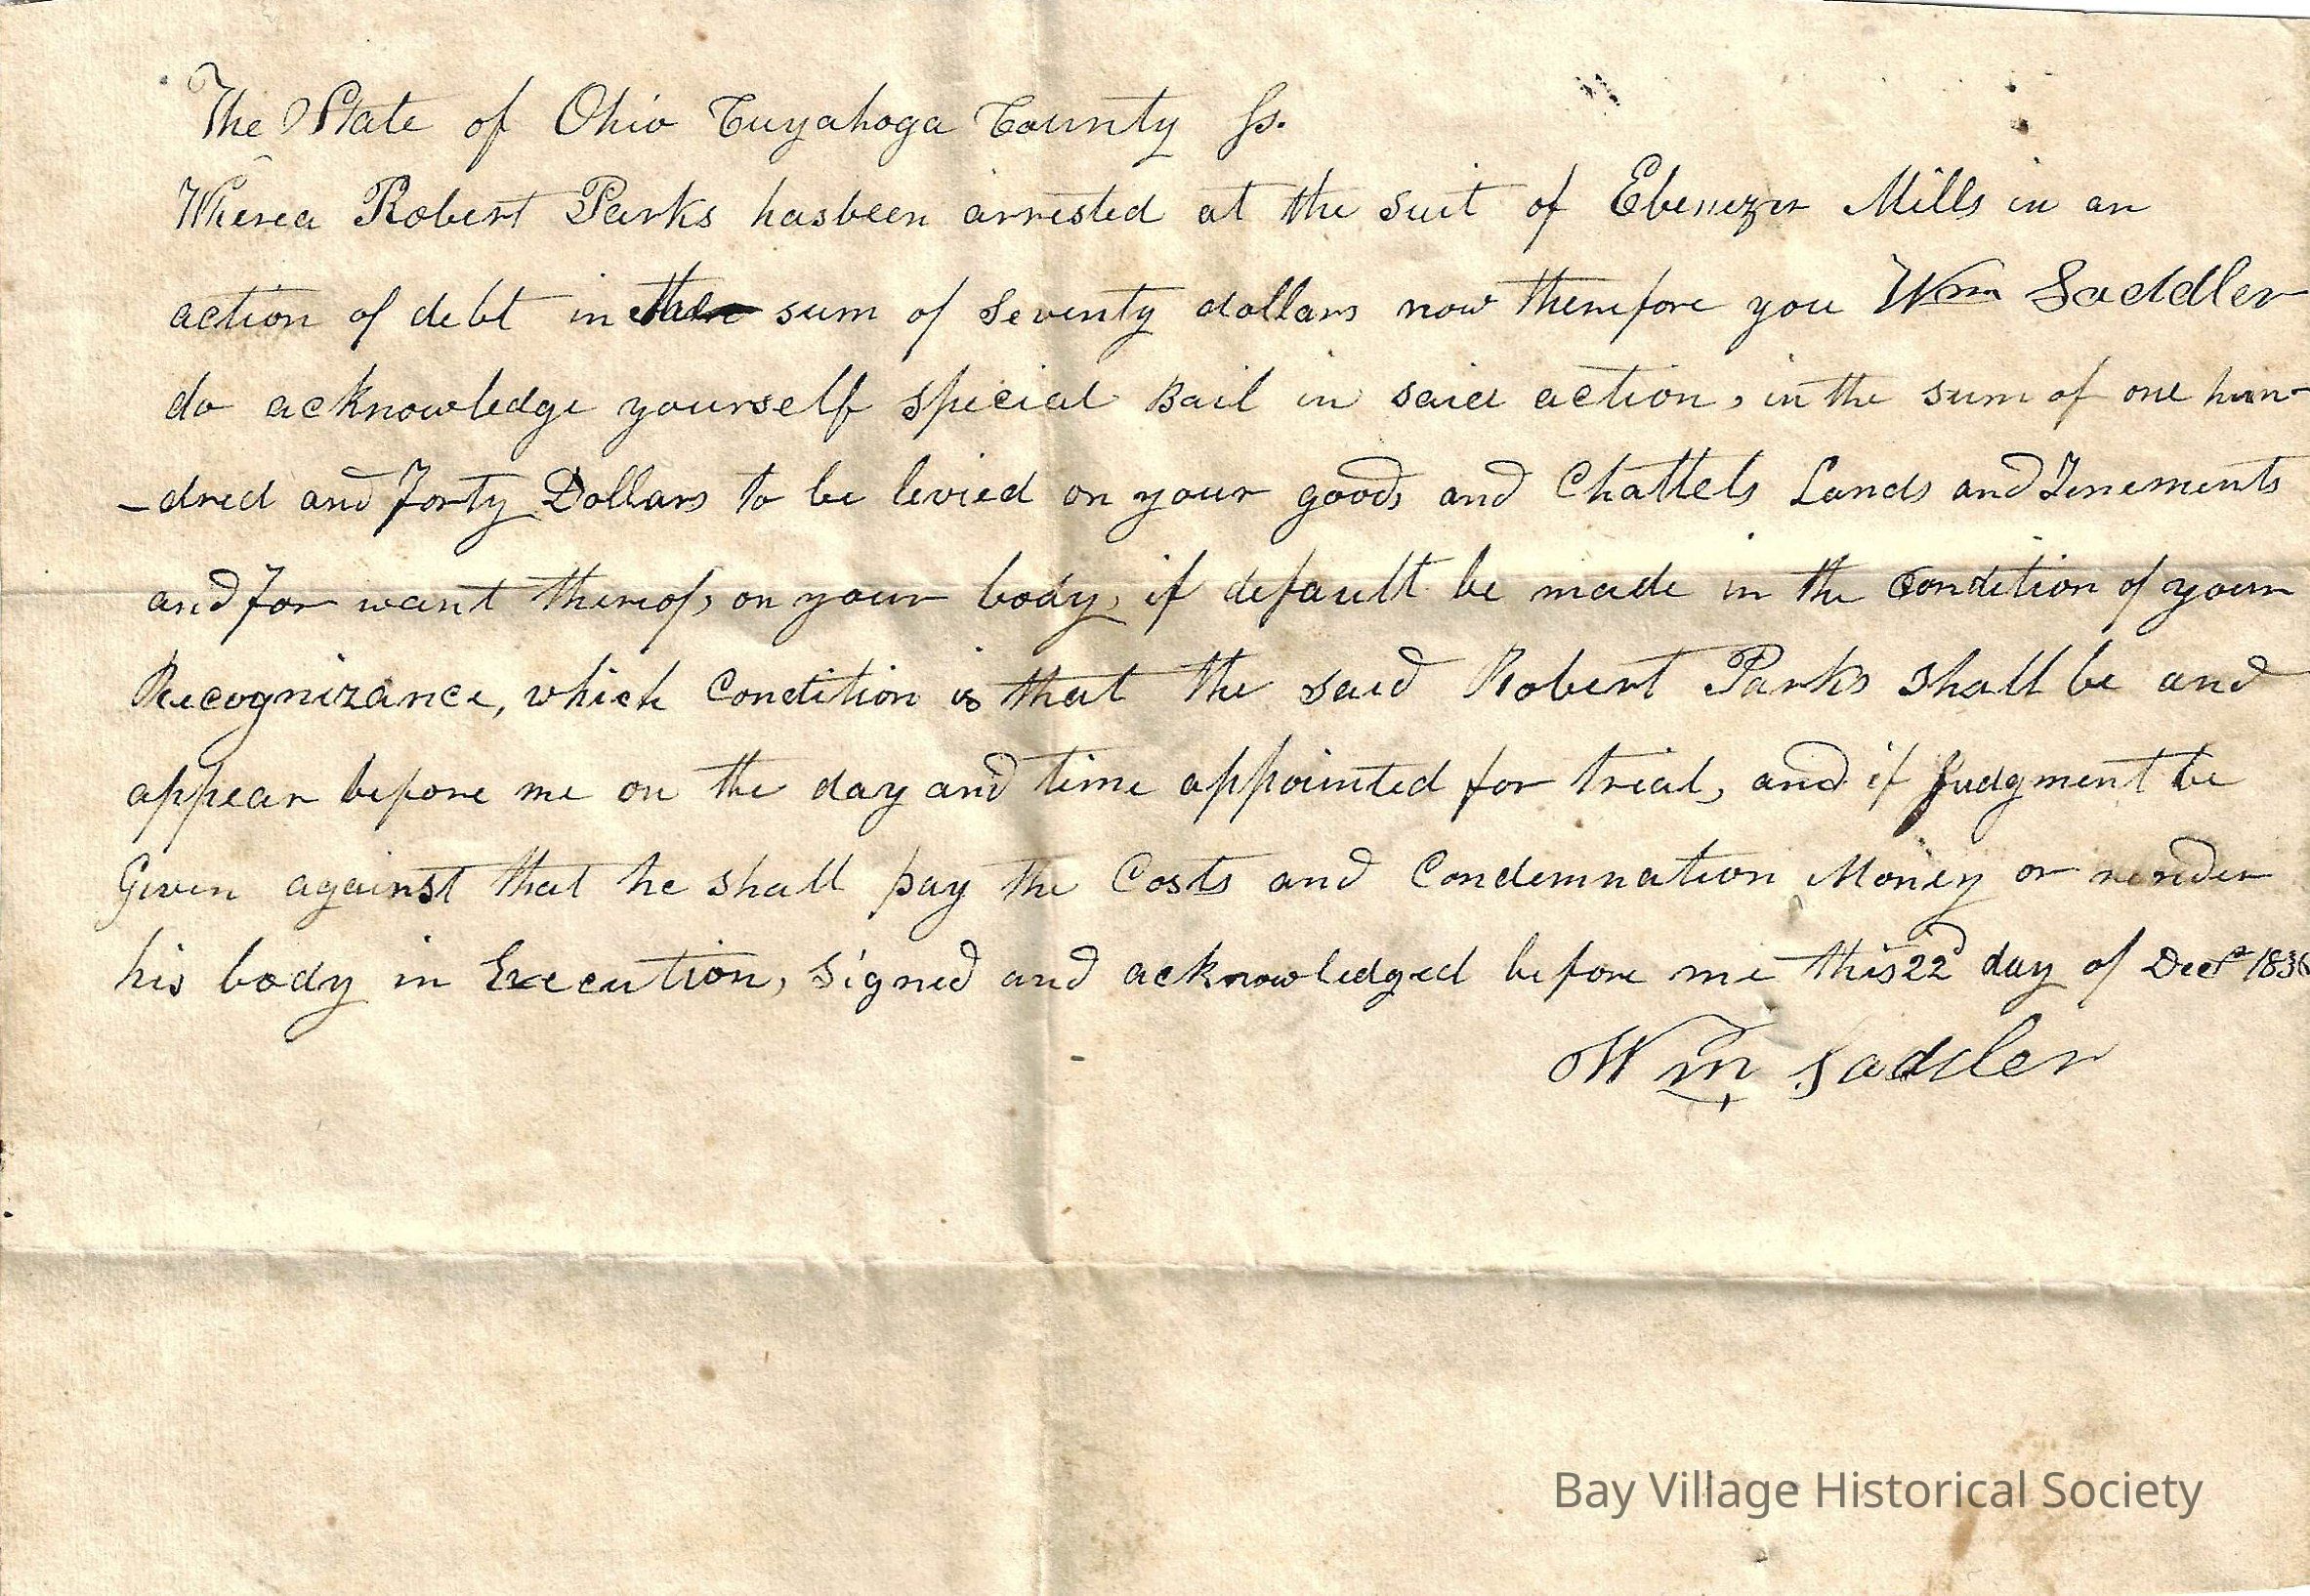 The State of Ohio Cuyahoga County Ss.
Wherea Robert Parks hasbeen arrested at the suit of Ebenezer Mills in an
action of debt in the sum of seventy dollars now therefore you Wm Saddler
do acknowledge yourself special Bail in said action, in the sum of one hun-
-dred and Forty Dollars to be levied on your goods and Chattels Lands and Tenements
and for want thereof, on your body, if default be made in the Condition of your
Recognizance, which Condition is that the said Robert Parks shall be and
appear before me on the day and time appointed for trial, and if Judgment be
Given against that he shall pay the Costs and Condemnation Money or render
his body in Execution, Signed and acknowledged before me this 22d day of Decr 1836
Wm Saddler
Bay Village Historical Society